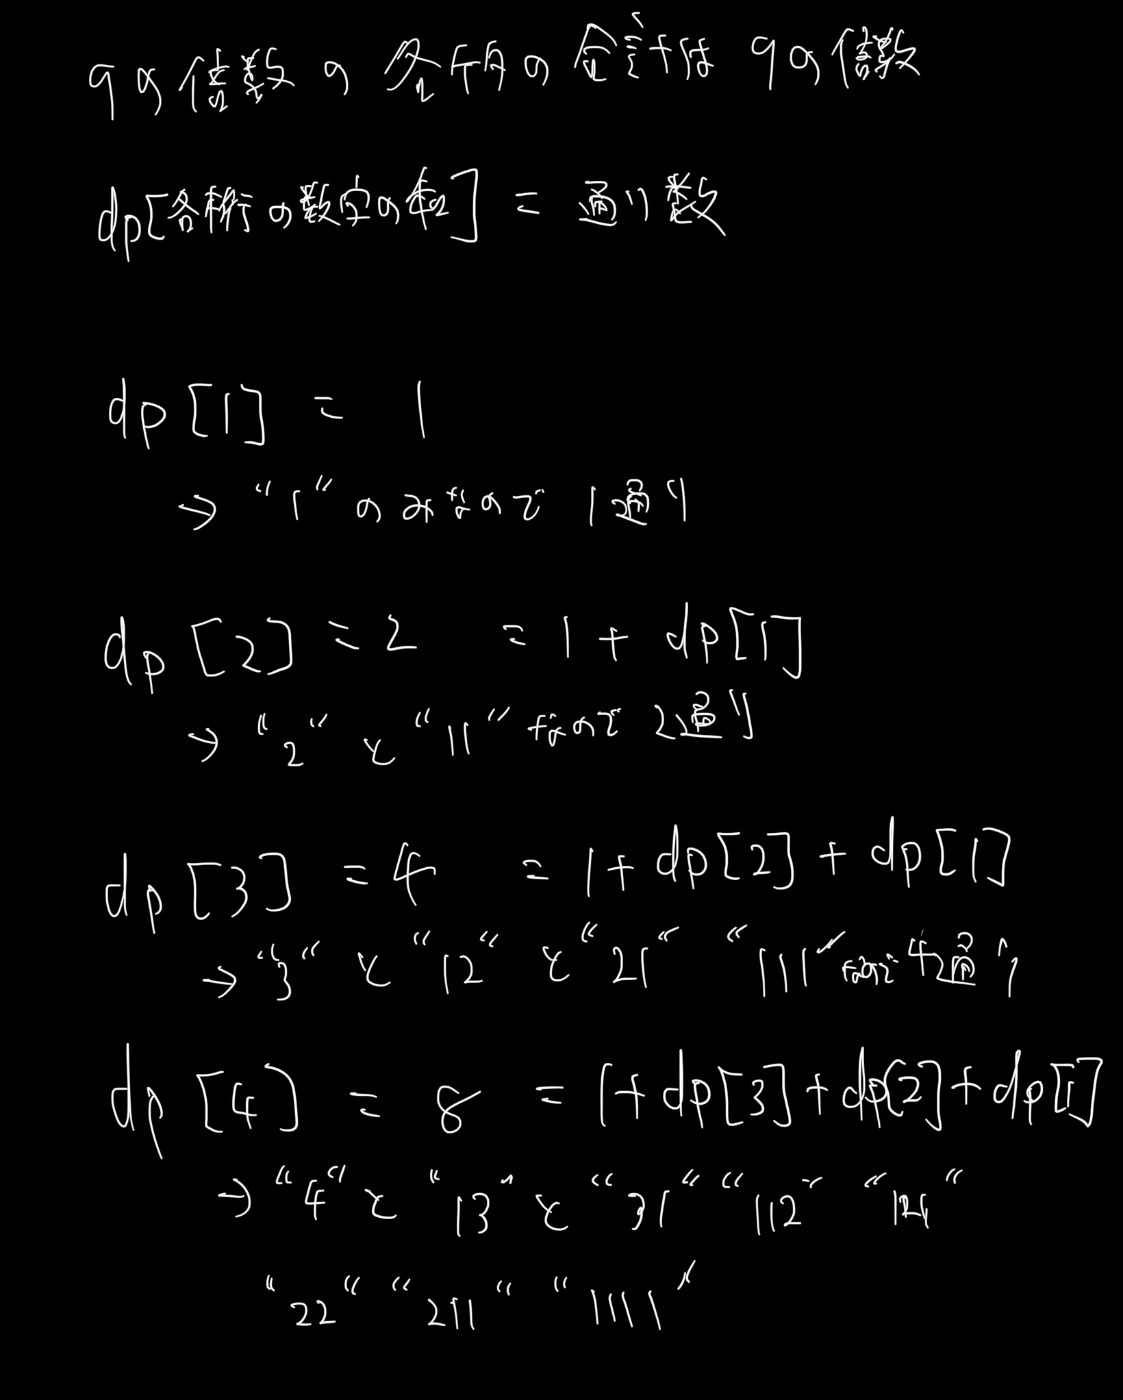 9の倍数の各桁の合計は9の倍数
dp[各桁の数字の和] = 通り数
dp[1] = 1
→ "1"のみなので1通り
dp[2] = 2 = 1 + dp[1]
→ "2"と"11"なので2通り
dp[3] = 4 = 1 + dp[2] + dp[1]
→ "3"と"12"と"21" "111"なので4通り
dp[4] = 8 = 1 + dp[3] + dp[2] + dp[1]
→ "4"と"13"と"31" "112" "121"
"22" "211" "1111"